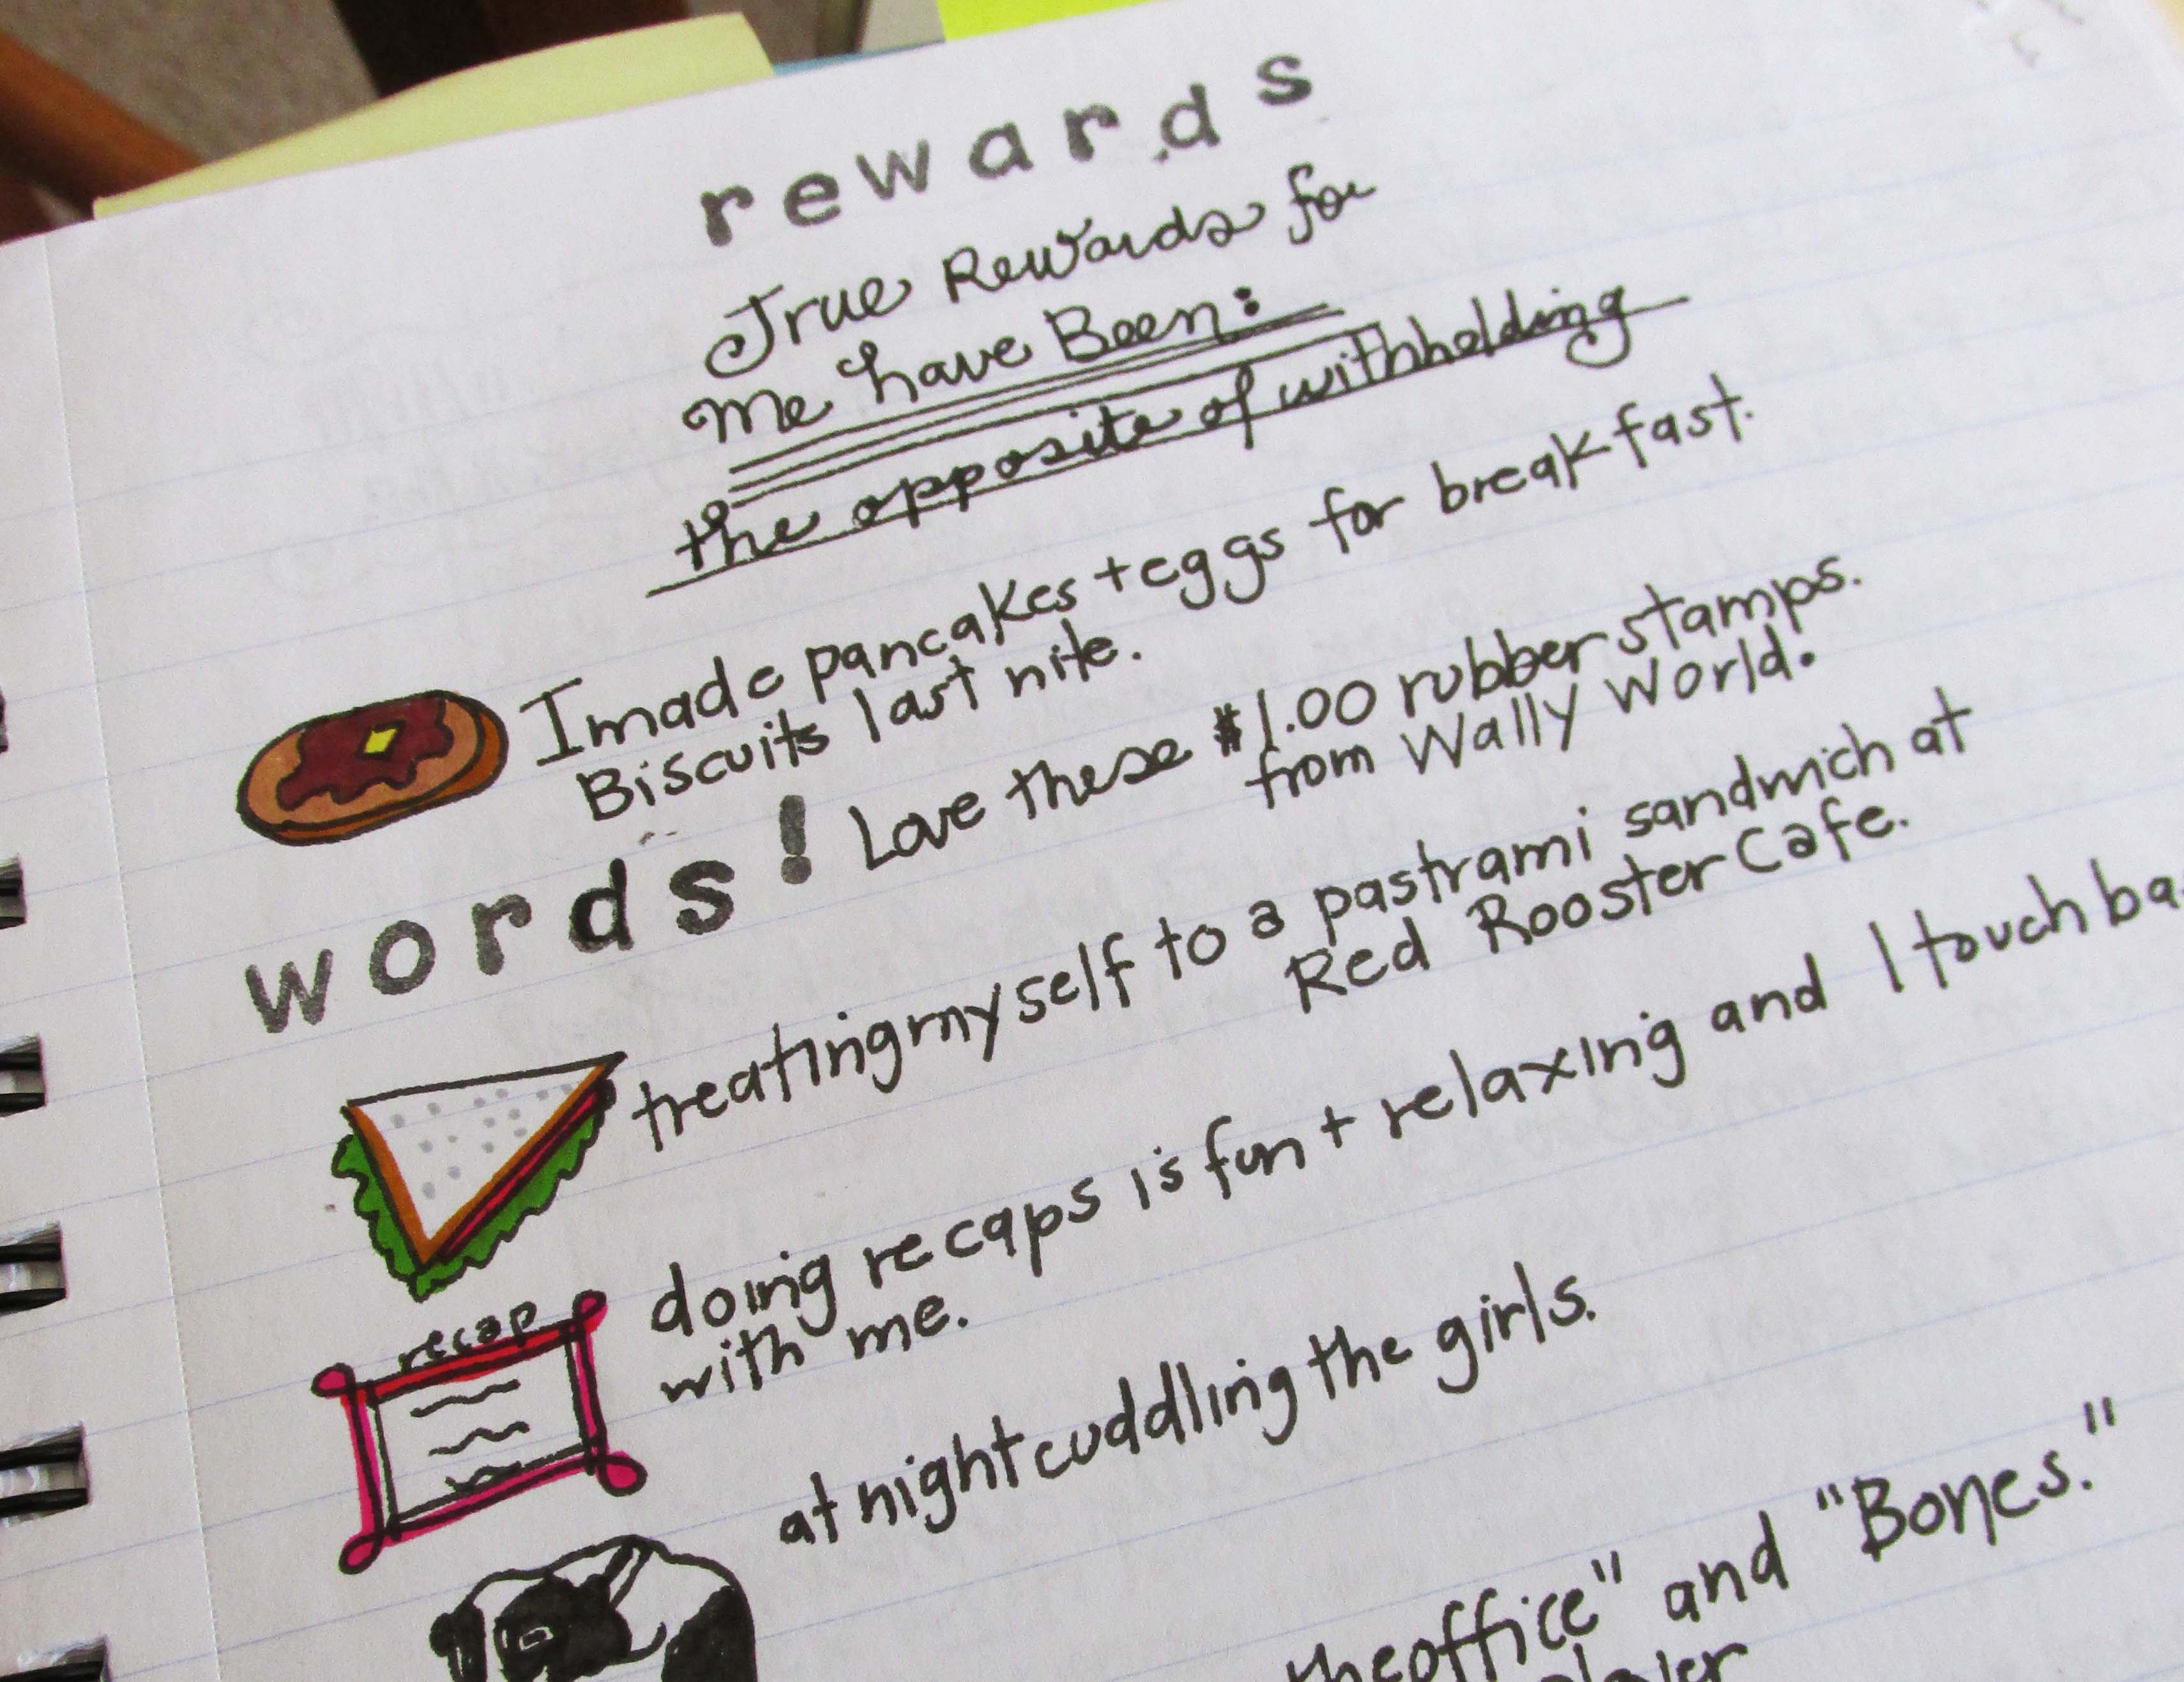 rewards
True Rewards for
me have Been:
the opposite of withholding
I made pancakes + eggs for breakfast.
Biscuits last nite.
words! Love these $1.00 rubber stamps.
from Wally World.
treating myself to a pastrami sandwich at
Red Rooster Cafe.
recap
doing recaps is fun + relaxing and I touch
with me.
at night cuddling the girls.
theoffice" and "Bones."